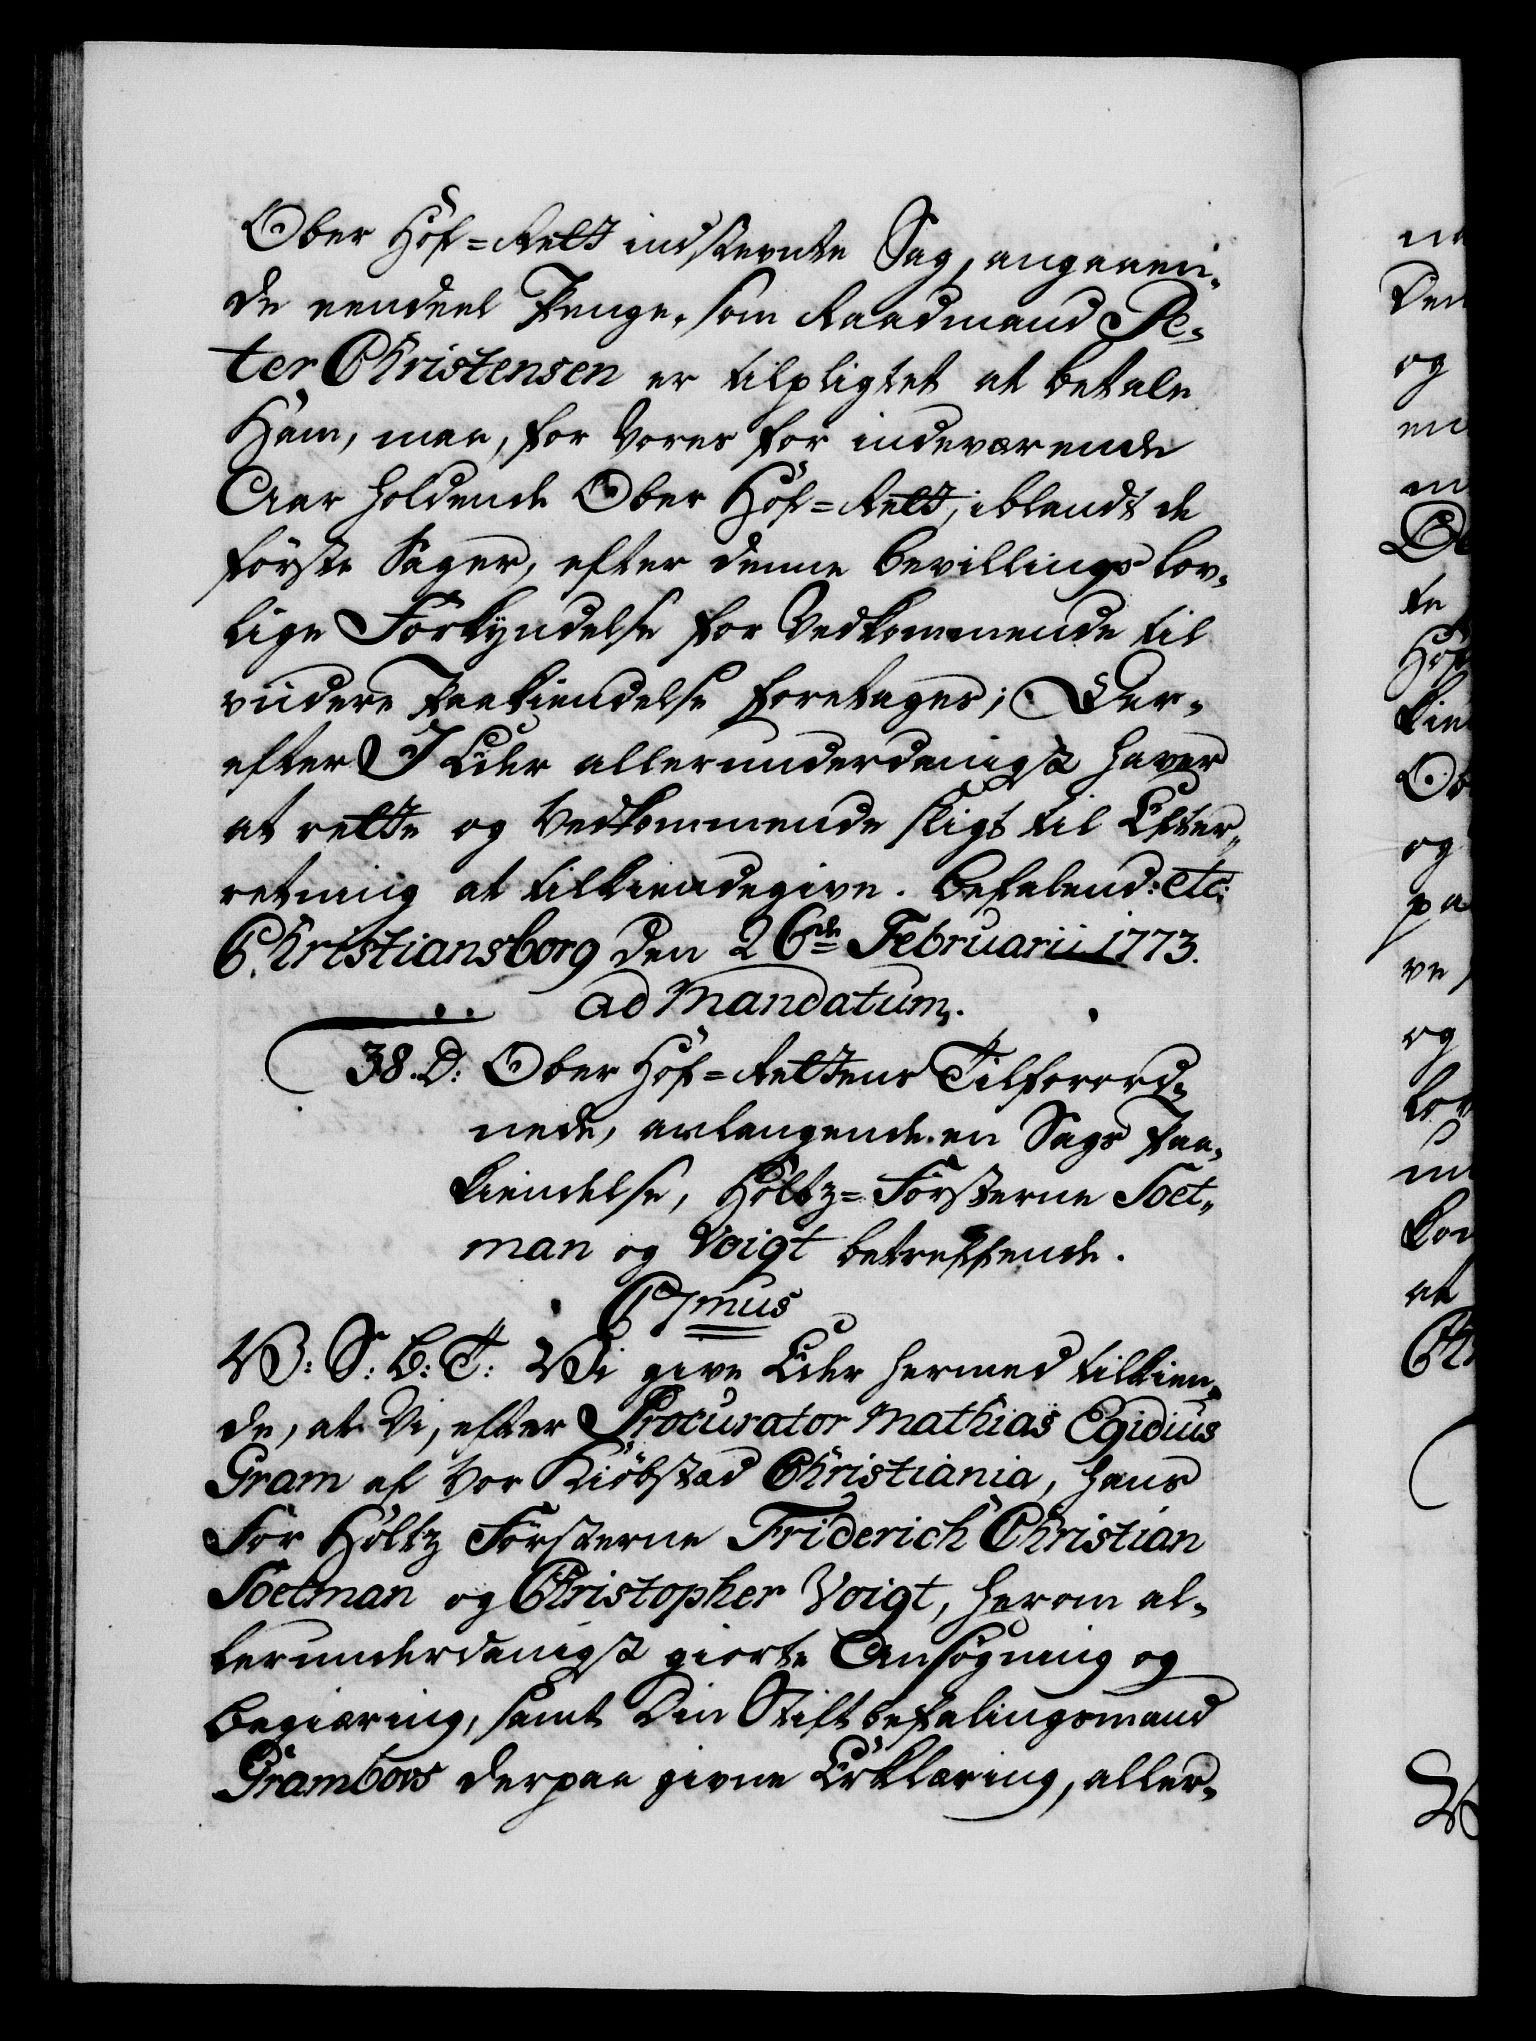 Ober Hof=Rett indstevnte Sag, angaaen-
de eendeel Penge, som Raadmand Pe-
ter Christensen er tilpligtet at betale
Ham, maa, for Vores for indeværende
Aar holdende Ober Hof=Rett, iblandt de
første Sager, efter denne Bevillings lov-
lige Forkyndelse for Vedkommende til
viidere Paakiendelse foretages; Der-
efter I Eder allerunderdanigst haver
at rette og Vedkommende sligt til Efter-
retning at tilkiendegive. Befalend: etc:
Christiansborg den 26de Februarii 1773.
ad Mandatum.
38. D: Ober Hof=Rettens Tilforord-
nede, anlangende en Sags Paa-
kiendelse, Holtz=Försterne Soet-
man og Voigt betreffende.
C7mus
V: S: G: T: Vi give Eder hermed tilkien-
de, at Vi, efter Procurator Mathias Egidius
Gram af Vor Kiøbstad Christiania, hans
for Holtz Försterne Friderich Christian
Soetman og Christopher Voigt, herom al-
lerunderdanigst giorte Ansøgning og
Begiæring, samt Din Stiftbefalingsmand
Grambovs derpaa givne Erklæring, aller-